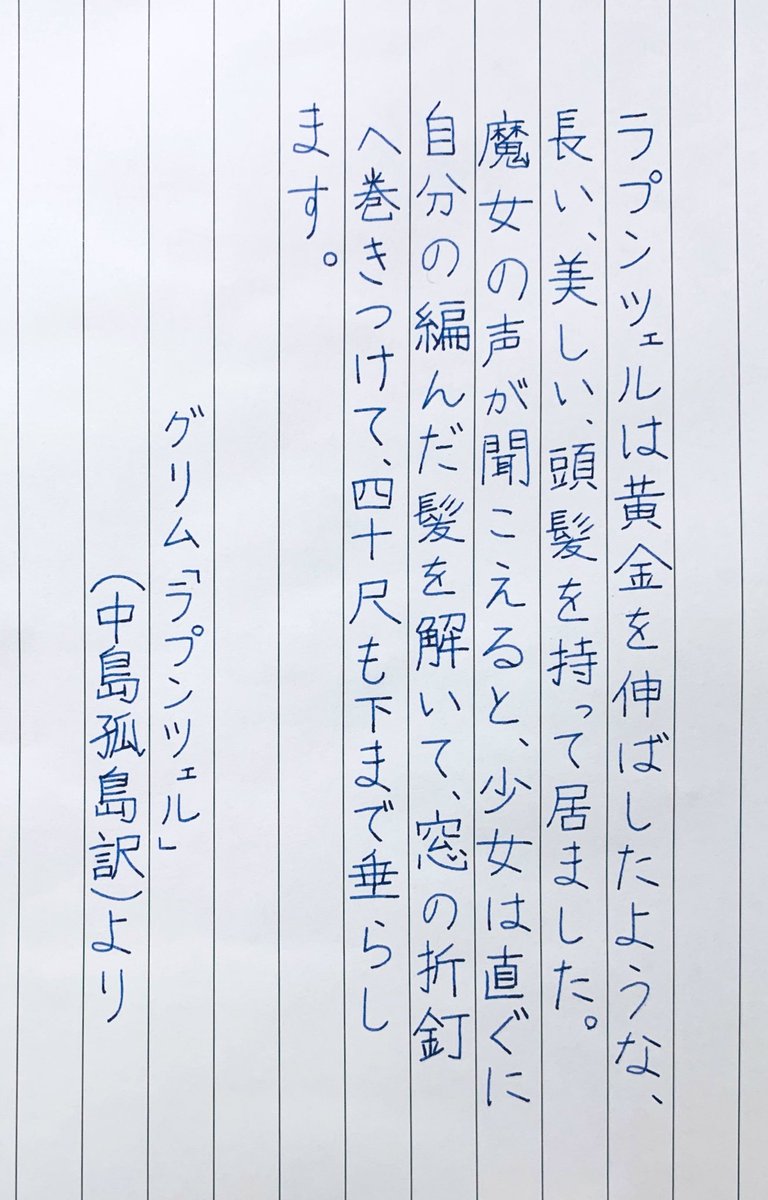 ラプンツェルは黄金を伸ばしたような、
長い、美しい、頭髪を持って居ました。
魔女の声が聞こえると、少女は直ぐに
自分の編んだ髪を解いて、窓の折釘
へ巻きつけて、四十尺も下まで垂らし
ます。
グリム「ラプンツェル」
(中島孤島訳)より